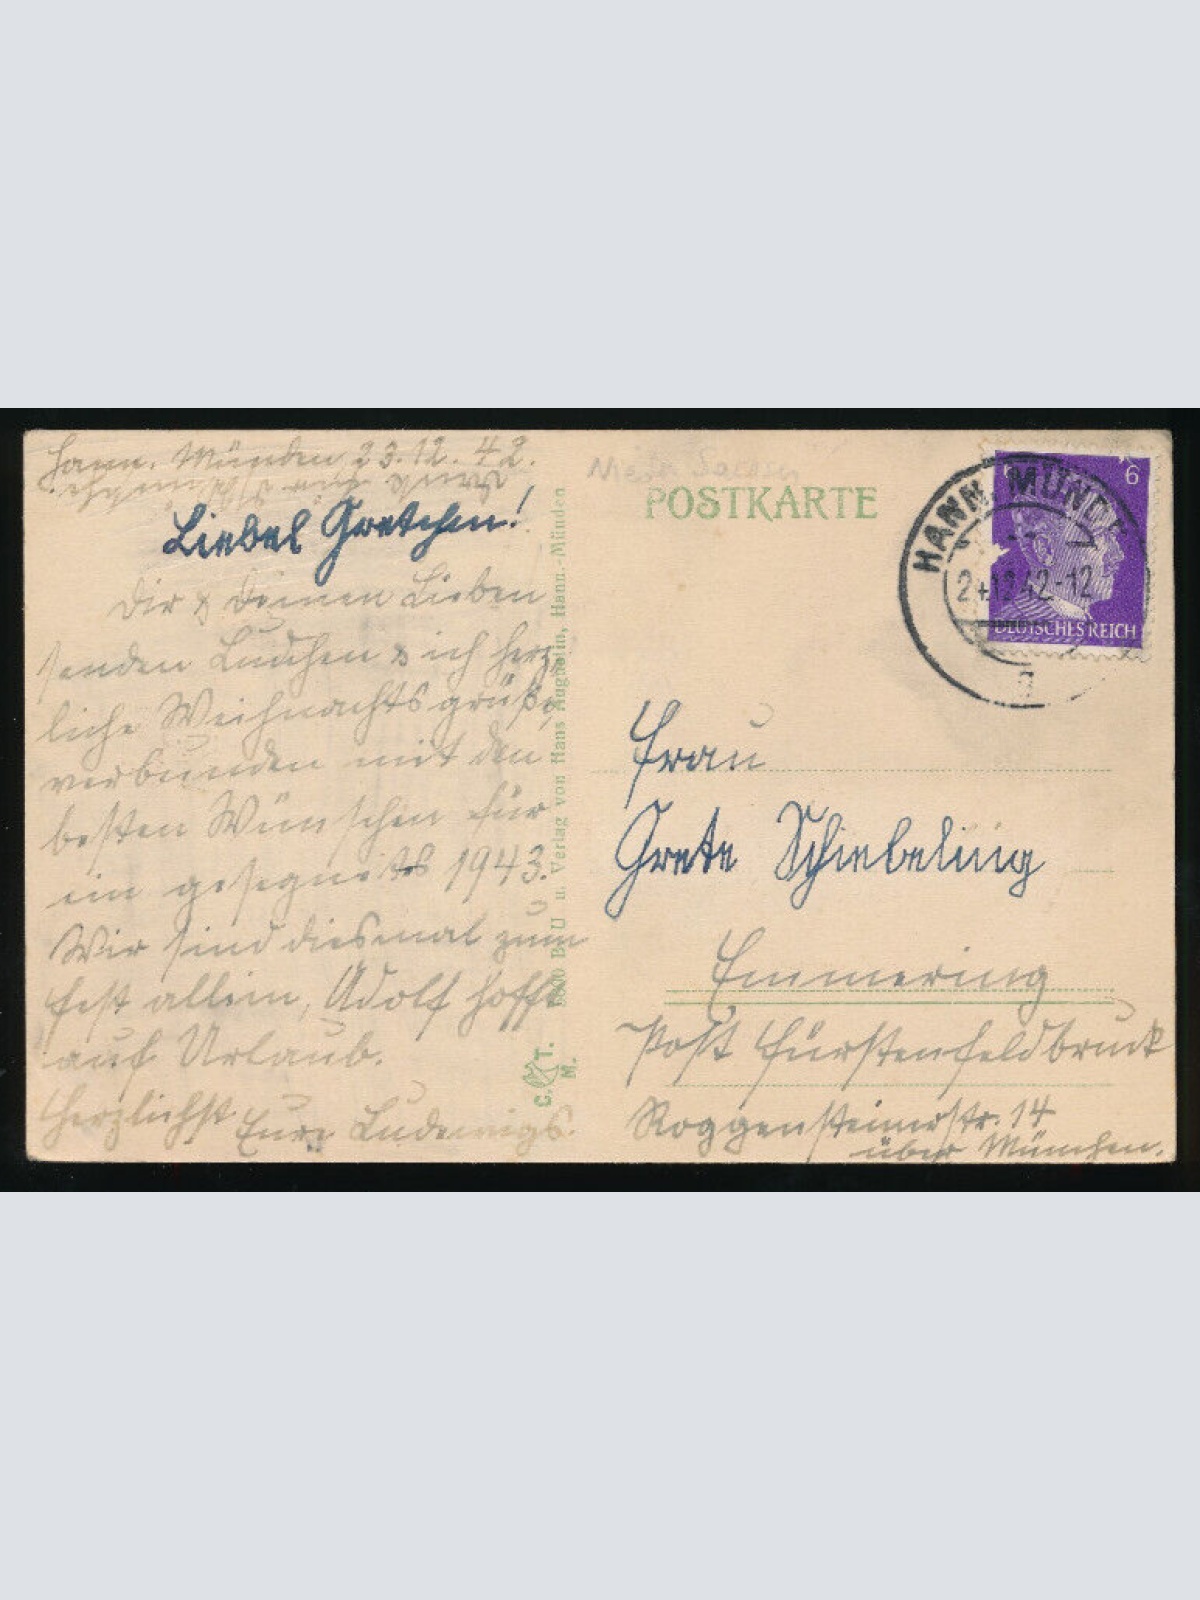 Hann. Münden 23.12.42.
Liebes Gretchen!
Dir & Deinen Lieben
senden Ludchen & ich herz-
liche Weihnachtsgrüße,
verbunden mit den
besten Wünschen für
ein gesegnetes 1943.
Wir sind diesmal zum
Fest allein, Adolf hofft
auf Urlaub.
Herzlichst Eure Ludewigs.
u. Verlag von Hans Augustin, Hann.-Münden
C. T.
M.
POSTKARTE
HANN. MÜNDEN
24.12.42.-12
6
DEUTSCHES REICH
Frau
Grete Schiebeling
Emmering
Post Fürstenfeldbruck
Roggensteinerstr. 14
über München.